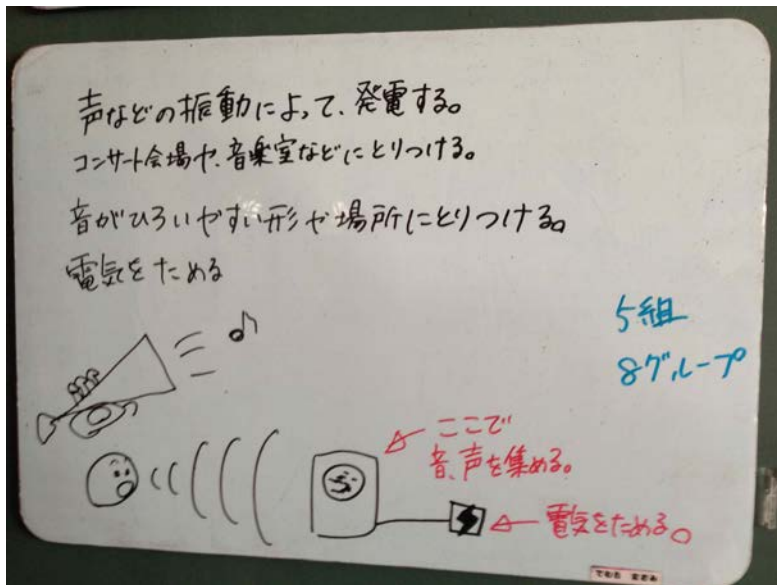 声などの振動によって、発電する。
コンサート会場や、音楽室などにとりつける。
音がひろいやすい形や場所にとりつける。
電気をためる
5組
8グループ
ここで
音、声を集める。
電気をためる。